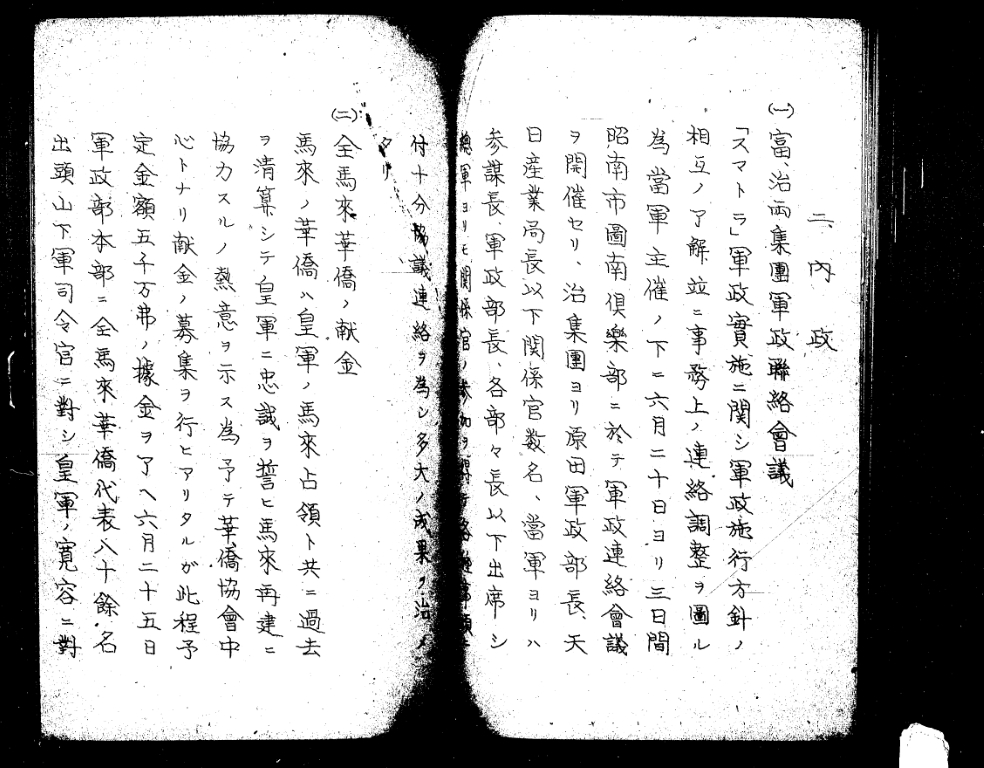 二、內政
(一)富、治兩集團軍政聯絡會議
「スマトラ」軍政實施ニ関シ軍政施行方針ノ
相互ノ了解竝ニ事務上ノ連絡調整ヲ圖ル
為當軍主催ノ下ニ六月二十日ヨリ三日間
昭南市圖南俱樂部ニ於テ軍政連絡會議
ヲ開催セリ、治集團ヨリ原田軍政部長、天
日産業局長以下関係官数名、當軍ヨリハ
参謀長軍政部長、各部々長以下出席シ
總軍ヨリモ関係官ノ参加ヲ得テ
付十分協議連絡ヲ為シ多大ノ成果ヲ治メ
タリ
(二)全馬來華僑ノ献金
馬來ノ華僑ハ皇軍ノ馬來占領ト共ニ過去
ヲ清算シテ皇軍ニ忠誠ヲ誓ヒ馬來再建ニ
協力スルノ熱意ヲ示ス為予テ華僑協會中
心トナリ献金ノ募集ヲ行ヒアリタルガ此程予
定金額五千万弗ノ據金ヲ了ヘ六月二十五日
軍政部本部ニ全馬來華僑代表八十餘名
出頭山下軍司令官ニ對シ皇軍ノ寛容ニ對